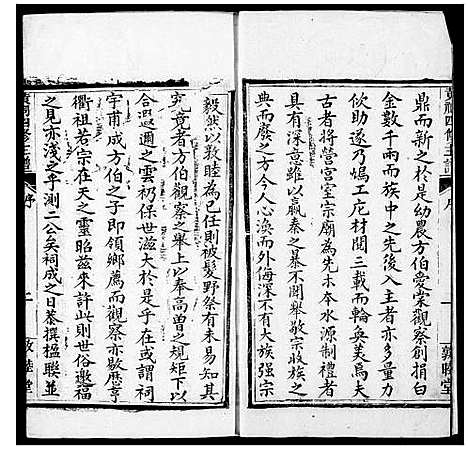 鼎而新之於是幼農方伯愛棠觀察創捐白
金數千兩而族中之先後入主者亦多量力
佽助遂乃鳩工庀材閱三載而輪奐美焉夫
古者將營宮室宗廟為先木本水源制禮者
具有深意雖以嬴秦之暴不聞舉敬宗收族之
典而廢之方今人心渙而外侮深不有大族強宗
敦睦堂
毅然以敦睦為己任則被髮野祭有未易知其
究竟者方伯觀察之舉上以奉高曾之規矩下以
合遐邇之雲礽保世滋大於是乎在或謂祠
宇甫成方伯之子即領鄉薦而觀察亦歇歷亨
衢祖若宗在天之靈昭茲來許此則世俗邀福
之見亦淺之乎測二公矣祠成之日葆撰楹聯並
序
二
敦睦堂